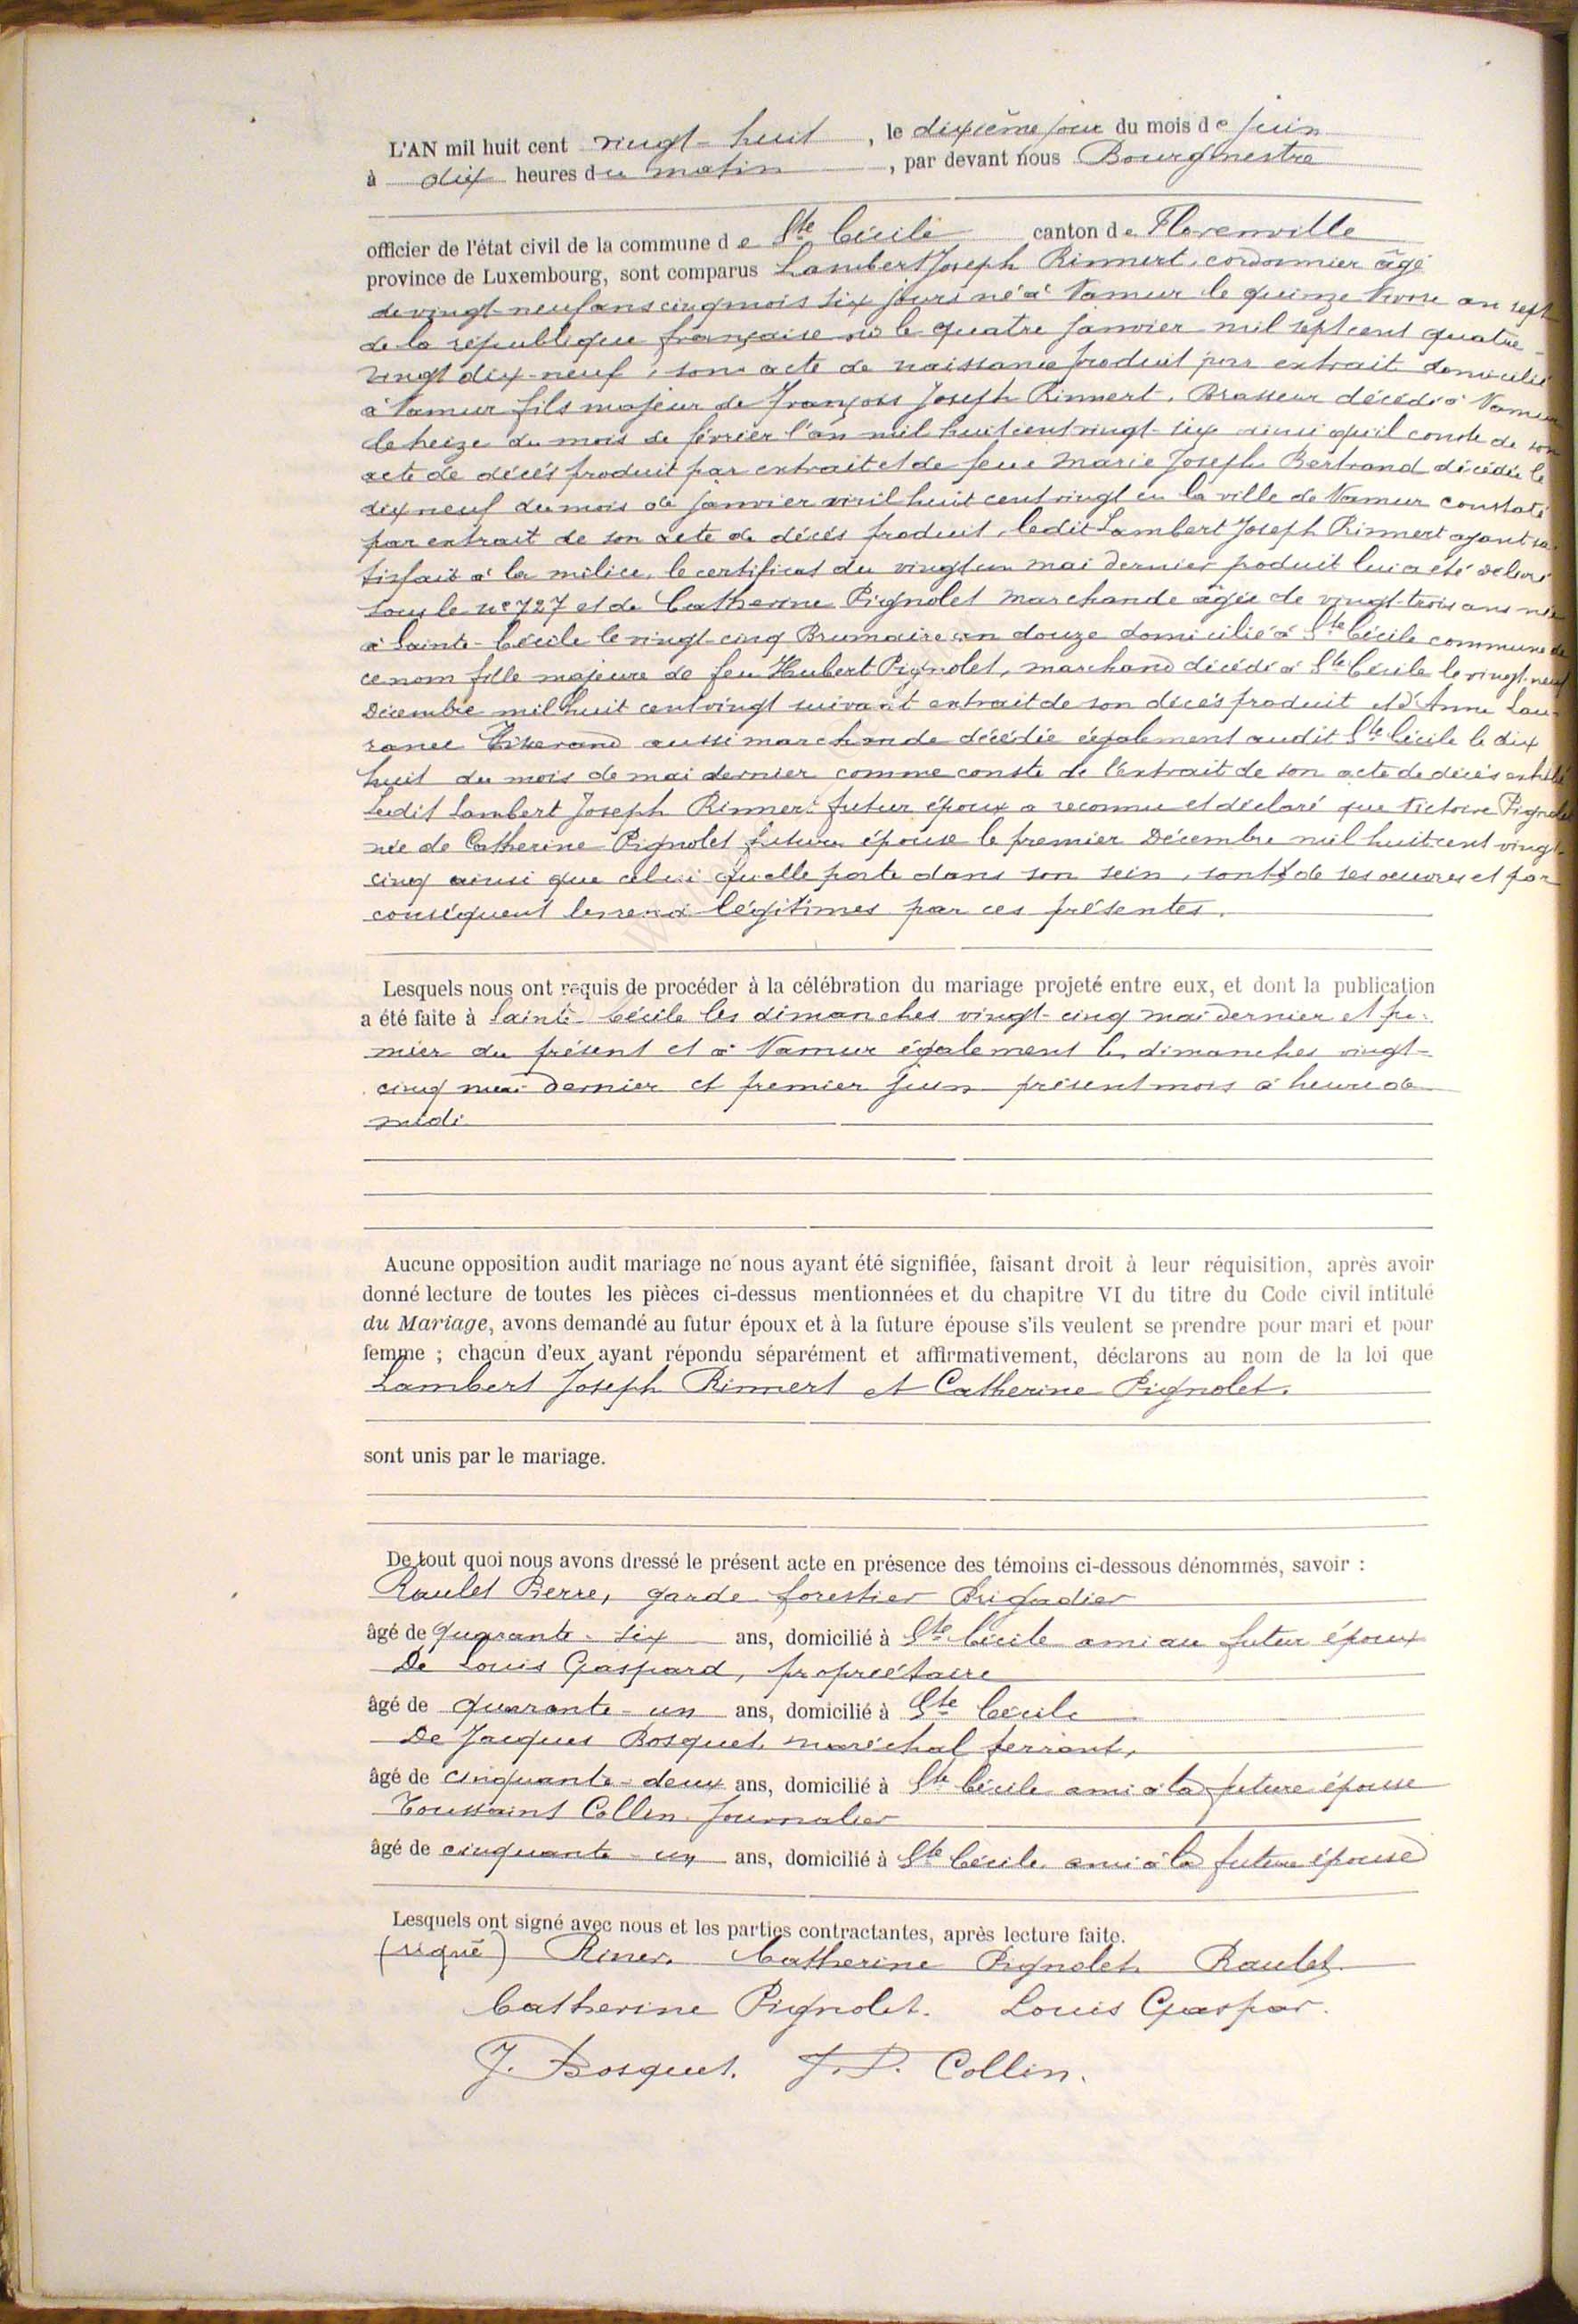 L'AN mil huit cent vingt-huit, le dixième jour du mois de juin
à dix heures du matin, par devant nous Bourgmestre
officier de l'état civil de la commune de Ste Cécile canton de Florenville
province de Luxembourg, sont comparus Lambert Joseph Rinnert, cordonnier âgé
de vingt-neuf ans cinq mois six jours né à Namur le quinze Nivose an sept
de la république française né le quatre janvier mil sept cent quatre-
vingt dix-neuf, son acte de naissance produit par extrait domicilié
à Namur fils majeur de François Joseph Rinnert, Brasseur décédé à Namur
le treize du mois de février l'an mil huit cent vingt-six ainsi qu'il conste de son
acte de décès produit par extrait et de feue Marie Joseph Bertrand décédée le
dix neuf du mois de janvier mil huit cent vingt en la ville de Namur constaté
par extrait de son acte de décès produit, ledit Lambert Joseph Rinnert ayant sa-
tisfait à la milice, le certificat du vingt un mai dernier produit lui a été délivré
sous le n° 727 et de Catherine Pignolet marchande âgée de vingt-trois ans née
à Sainte-Cécile le vingt-cinq Brumaire an douze domicilié à Ste Cécile commune de
ce nom fille majeure de feu Hubert Pignolet, marchand décédé à Ste Cécile le vingt-neuf
Décembre mil huit cent vingt suivant extrait de son décès produit et d'Anne Lau-
rance Tisserand aussi marchande décédée également audit Ste Cécile le dix
huit du mois de mai dernier comme conste de l'extrait de son acte de décès exhibé
Ledit Lambert Joseph Rinnert futur époux a reconnu et déclaré que Victoire Pignolet
née de Catherine Pignolet future épouse le premier Décembre mil huit cent vingt-
cinq ainsi que celui qu'elle porte dans son sein, sont de ses œuvres et par
conséquent les rend légitimes par ces présentes.
Lesquels nous ont requis de procéder à la célébration du mariage projeté entre eux, et dont la publication
a été faite à Sainte-Cécile les dimanches vingt-cinq mai dernier et pre-
mier du présent et à Namur également les dimanches vingt-
cinq mai dernier et premier juin présent mois à heure de
midi
Aucune opposition audit mariage ne nous ayant été signifiée, faisant droit à leur réquisition, après avoir
donné lecture de toutes les pièces ci-dessus mentionnées et du chapitre VI du titre du Code civil intitulé
du Mariage, avons demandé au futur époux et à la future épouse s'ils veulent se prendre pour mari et pour
femme ; chacun d'eux ayant répondu séparément et affirmativement, déclarons au nom de la loi que
Lambert Joseph Rinnert et Catherine Pignolet.
sont unis par le mariage.
De tout quoi nous avons dressé le présent acte en présence des témoins ci-dessous dénommés, savoir :
Raulet Pierre, garde forestier Brigadier
âgé de quarante-six ans, domicilié à Ste Cécile ami au futur époux
De Louis Gaspard, propriétaire
âgé de quarante-un ans, domicilié à Ste Cécile
De Jacques Bosquet, maréchal ferrant,
âgé de cinquante-deux ans, domicilié à Ste Cécile ami à la future épouse
Toussaint Collin Journalier
âgé de cinquante-un ans, domicilié à Ste Cécile ami à la future épouse
Lesquels ont signé avec nous et les parties contractantes, après lecture faite.
(signé) Riner. Catherine Pignolet. Raulet.
Catherine Pignolet. Louis Gaspar.
J. Bosquet. J. P. Collin.